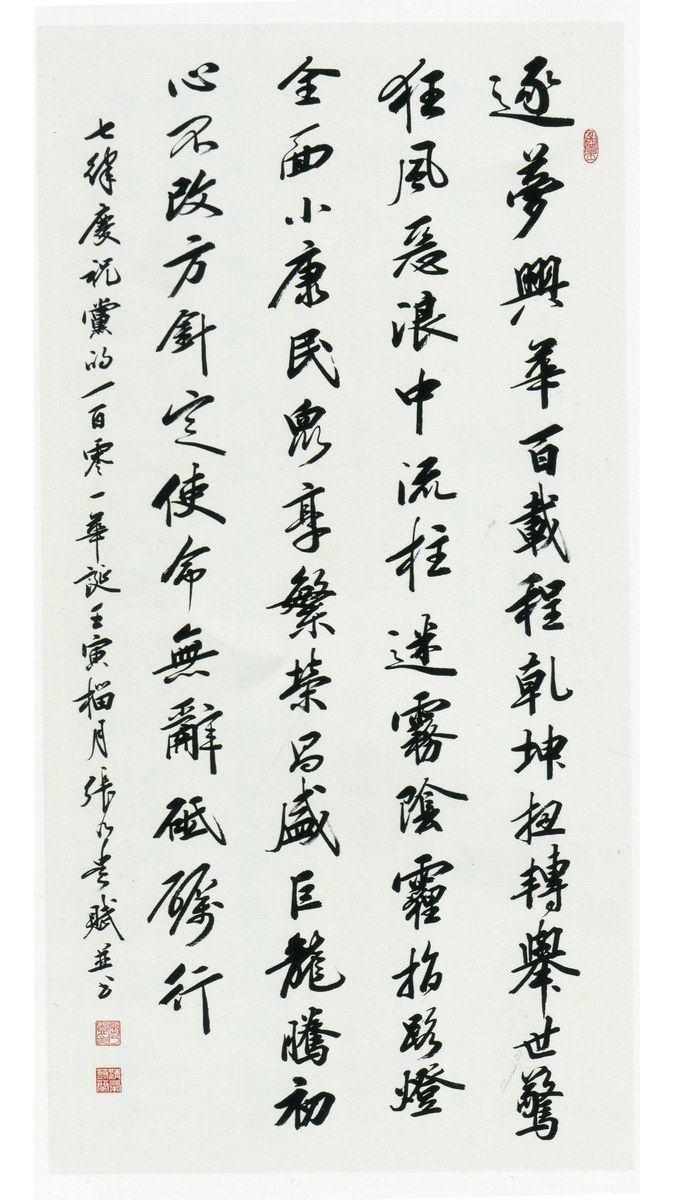 逐夢興華百載程乾坤扭轉舉世驚
狂風惡浪中流柱迷霧陰霾指路燈
全面小康民眾享繁榮昌盛巨龍騰初
心不改方針定使命無辭砥礪行
七律慶祝黨的一百零一華誕壬寅榴月張久貴賦並書